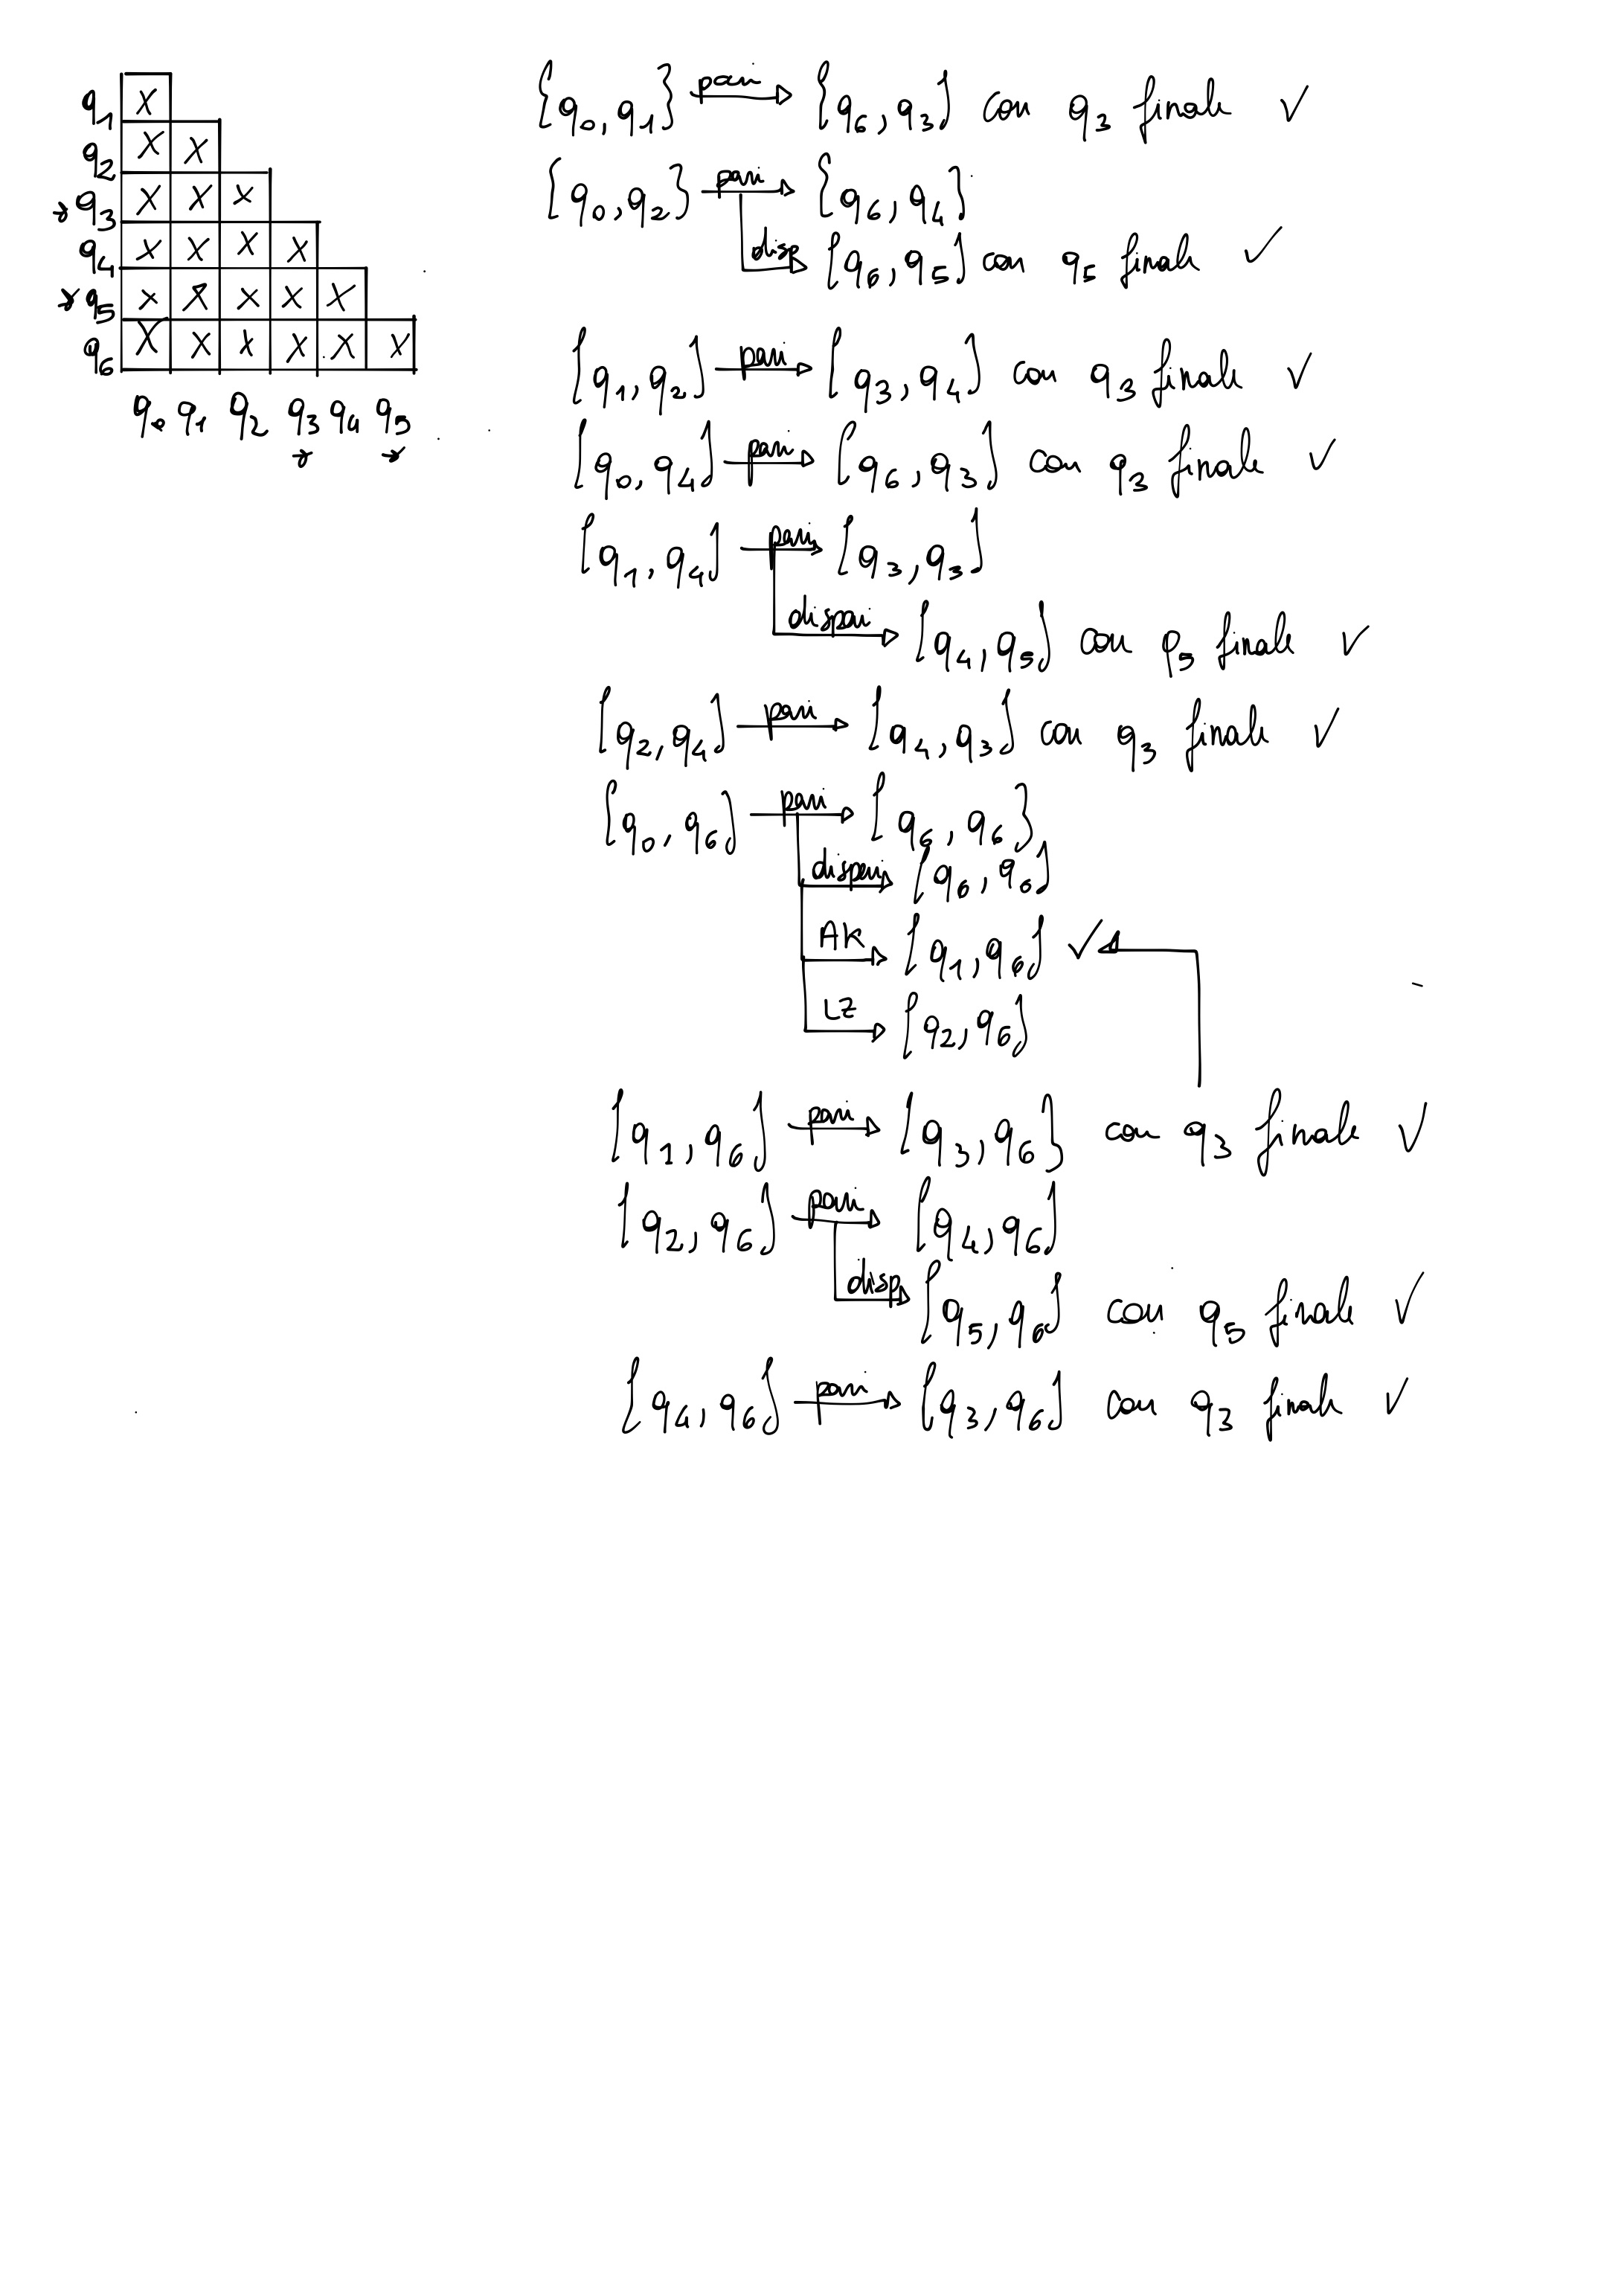 q1 X
q2 X X
q3 X X X
q4 X X X X
q5 X X X X X
q6 X X X X X X
q0 q1 q2 q3 q4 q5
{q0, q1} pari {q6, q3} con q3 finale ✓
{q0, q2} pari {q6, q4}
disp {q6, q5} con q5 finale ✓
{q1, q2} pari {q3, q4} con q3 finale ✓
{q0, q4} pari {q6, q3} con q3 finale ✓
{q1, q4} pari {q3, q3}
dispari {q4, q5} con q5 finale ✓
{q2, q4} pari {q4, q3} con q3 finale ✓
{q0, q6} pari {q6, q6}
dispari {q6, q6}
AK {q1, q6} ✓
LZ {q2, q6}
{q1, q6} pari {q3, q6} con q3 finale ✓
{q2, q6} pari {q4, q6}
disp {q5, q6} con q5 finale ✓
{q4, q6} pari {q3, q6} con q3 finale ✓